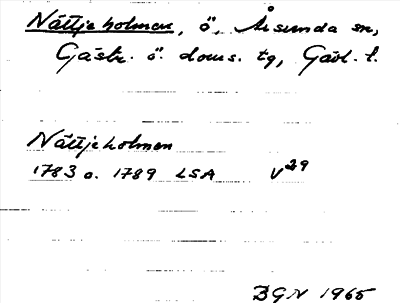 Nättjeholmen, ö, Årsunda sn,
Gästr. ö. doms. tg, Gävl. l.
Nättjeholmen
1783 o. 1789 LSA V29
BGN 1965